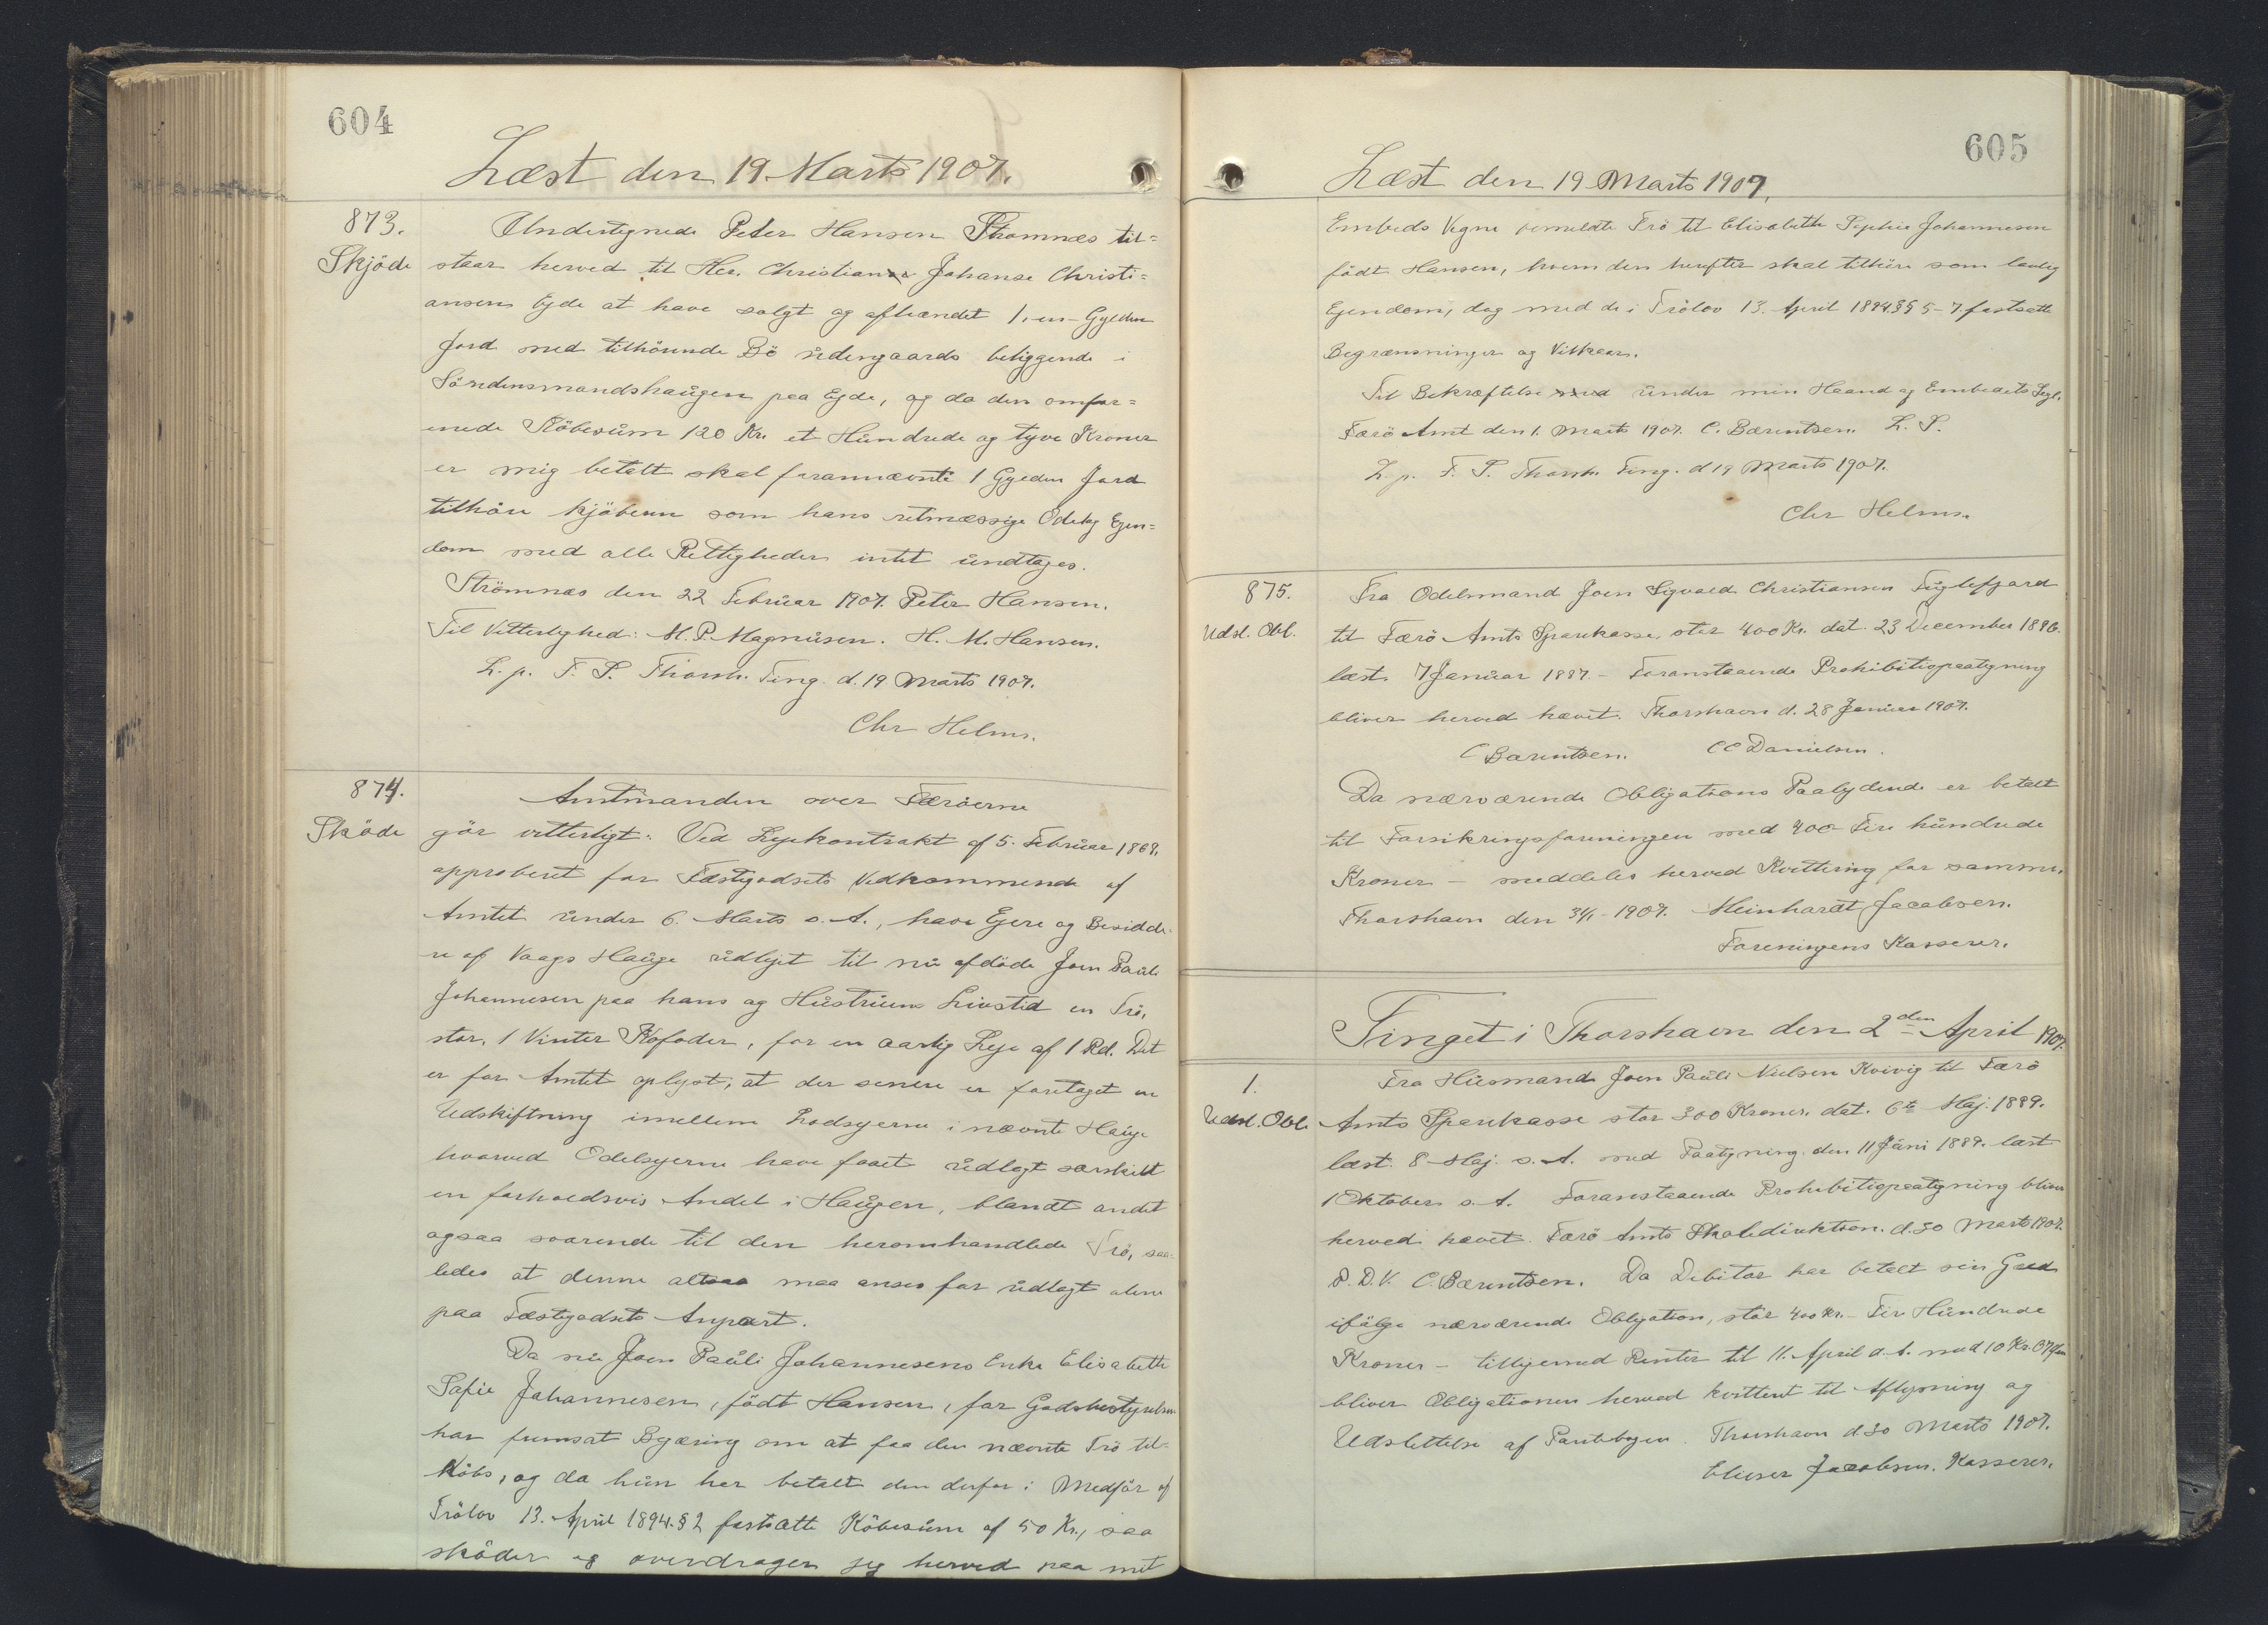 604
Læst den 19. Marts 1907.
873.
Skjöde
Undertegnede Peter Hansen Strömnæs til=
staar herved til Hr. Christian Johanse Christi=
ansen Ejde at have solgt og afhændet 1, en Gylden
Jord med tilhörende Bö udengaards beliggende i
paa Ejde, og da den omfor=
enede Köbesum 120 Kr. et Hundrede og tyve Kroner
er mig betalt skal forannævnte 1 Gylden Jord
tilhöre kjöberen som hans retmæssige Odels Ejen=
dom med alle Rettigheder intet undtages.
Strömnæs den 22 Februar 1907. Peter Hansen.
Til Vitterlighed: M. P. Magnusen. H. M. Hansen.
L. p. F. S. Thorsh. Ting d. 19 Marts 1907.
Chr Helms.
874.
Sköde
Amtmanden over Færöerne
gör vitterligt: Ved Lejekontrakt af 5. Februar 1869,
approberet for Fæstegodsets Vedkommende af
Amtet under 6. Marts s. A., have Ejere og Besidde=
re af Vaags Hauge udlejet til nu afdöde Joen Pauli
Johannesen paa hans og Hustrues Livstid en Trö,
stor, 1 Vinter Kofoder, for en aarlig Leje af 1 Rd. Det
er for Amtet oplyst, at der senere er foretaget en
Udskiftning imellem Lodsejerne i nævnte Hauge
hvorved Odelsejerne have faaet udlagt særskilt
en forholdsvis Andel i Haugen, blandt andet
ogsaa svarende til den heromhandlede Trö, saa=
ledes at denne altsaa maa anses for udlagt alene
paa Fæstegodsets Anpart.
Da nu Joen Pauli Johannesens Enke Elisabeth
Sofie Johannesen, födt Hansen, for Godsbestyrelsen
har fremsat Begæring om at faa den nævnte Trö til
Köbs, og da hun har betalt den derfor i Medför af
Trölov 13. April 1894. § 2 fastsatte Köbesum af 50 Kr., saa
sköder og overdrager jeg herved paa mit
605
Læst den 19. Marts 1907.
Embeds Vegne bemeldte Trö til Elisabeth Sophie Johannesen
födt Hansen, hvem den herefter skal tilhöre som lovlig
Ejendom, dog med de i Trölov 13. April 1894 §§ 5-7 fastsatte
Begrænsninger og Vilkaar.
Til Bekræftelse under min Haand og Embedets Segl.
Færö Amt den 1. Marts 1907. C. Bærentsen. L. S.
L. p. F. S. Thorsh. Ting. d 19 Marts 1907.
Chr Helms.
875.
Udsl. Obl.
Fra Odelsmand Joen Sigvald Christiansen Fuglefjord
til Færö Amts Sparekasse, stor 400 Kr. dat. 23 December 1886.
læst 7 Januar 1887. - Foranstaaende Prohibitivpaategning
bliver herved hævet. Thorshavn d. 28 Januar 1907.
C Bærentsen. CC Danielsen.
Da nærværende Obligations Paalydende er betalt
til Forsikringsforeningen med 400 - Fire hundrede
Kroner - meddeles herved Kvittering for samme.
Thorshavn den 31/1 - 1907. Meinhardt Jacobsen.
Foreningens Kasserer.
Tinget i Thorshavn den 2den April 1907.
1.
Udsl. Obl.
Fra Husmand Joen Pauli Nielsen Kvivig til Færö
Amts Sparekasse stor 300 Kroner, dat. 6te Maj. 1889.
læst. 8 Maj. s. A. med Paategning den 11 Juni 1889. læst
1 Oktober s. A. Foranstaaende Prohibitivpaategning bliver
herved hævet. Færö Amts Skoledirektion. d. 30 Marts 1907.
P. D. V. C. Bærentsen. Da Debitor har betalt sin Gæld
ifölge nærværende Obligation, stor 400 Kr. - Fire Hundrede
Kroner - tilligemed Renter til 11. April d. A. med 10 Kr. 07
bliver Obligationen herved kvitteret til Aflysning og
Udslettelse af Pantebogen. Thorshavn d 30 Marts 1907.
Elieser Jacobsen. Kasserer.